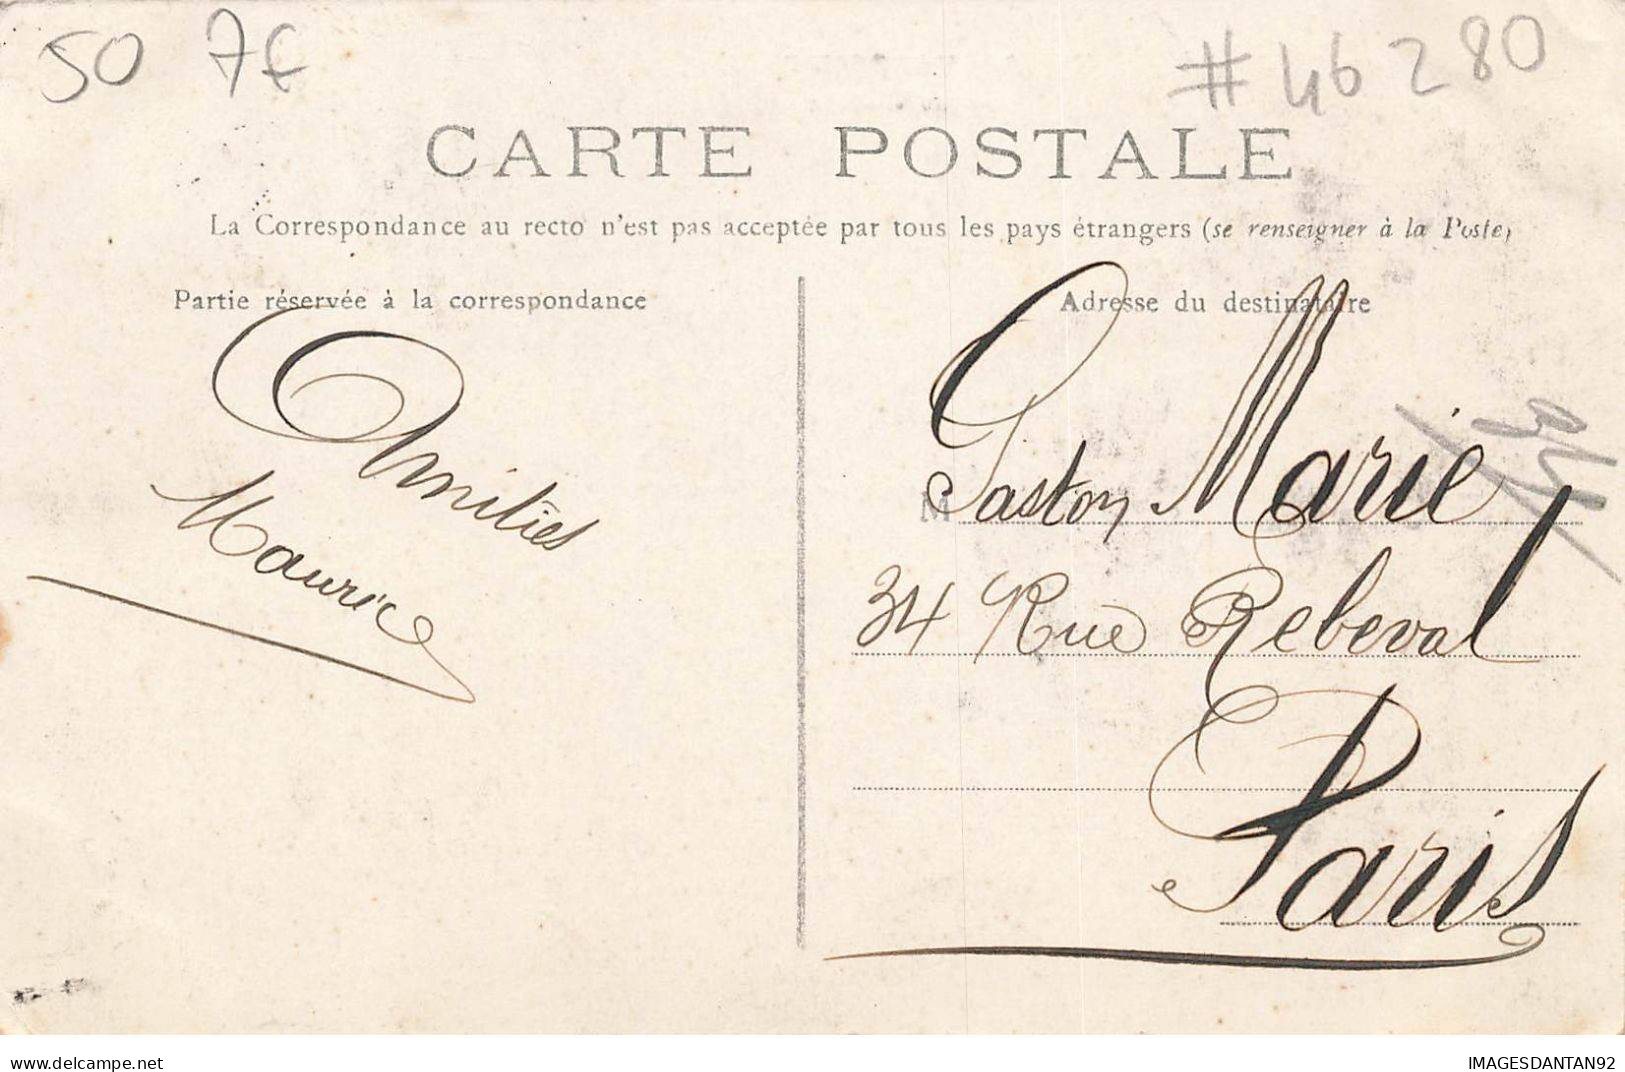 50 7€ #46280
CARTE POSTALE
La Correspondance au recto n'est pas acceptée par tous les pays étrangers (se renseigner à la Poste)
Partie réservée à la correspondance
Amitiés
Maurice
Adresse du destinataire
M Gaston Marie
34 Rue Rebeval
Paris
delcampe.net
IMAGESDANTAN92